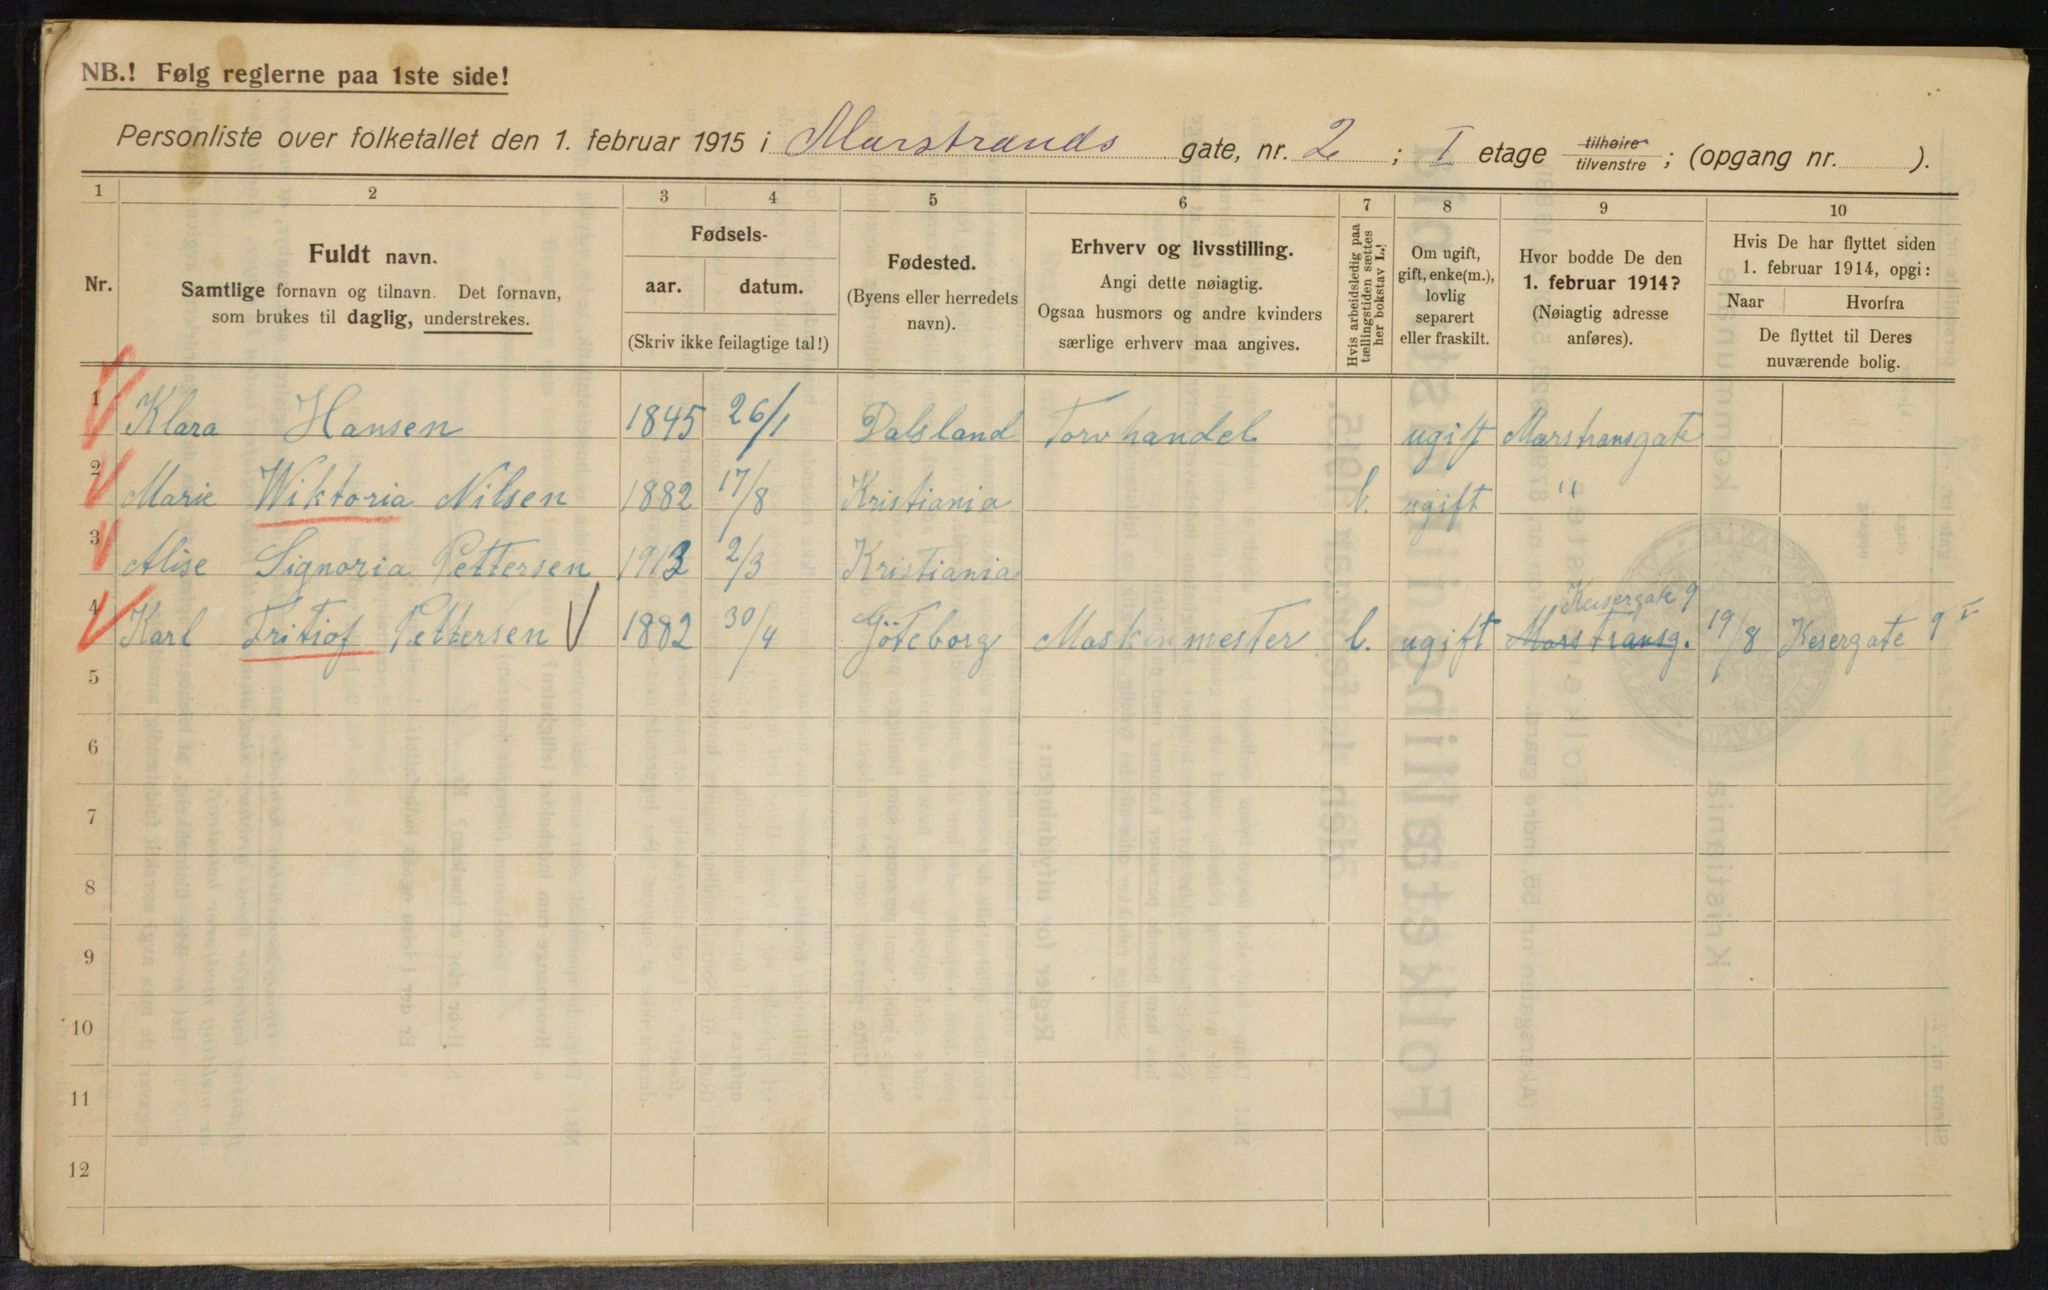 NB.! Følg reglerne paa 1ste side!
Personliste over folketallet den 1. februar 1915 i Marstrands gate, nr. 2 ; I etage tilhøire tilvenstre ; (opgang nr. ).
1 2 3 4 5 6 7 8 9 10
Nr.
Fuldt navn.
Samtlige fornavn og tilnavn. Det fornavn,
som brukes til daglig, understrekes.
Fødsels-
aar. datum.
(Skriv ikke feilagtige tal!)
Fødested.
(Byens eller herredets
navn).
Erhverv og livsstilling.
Angi dette nøiagtig.
Ogsaa husmors og andre kvinders
særlige erhverv maa angives.
Hvis arbeidsledig paa
tællingstiden sættes
her bokstav L.!
Om ugift,
gift, enke(m.),
lovlig
separert
eller fraskilt.
Hvor bodde De den
1. februar 1914?
(Nøiagtig adresse
anføres).
Hvis De har flyttet siden
1. februar 1914, opgi:
Naar Hvorfra
De flyttet til Deres
nuværende bolig.
1 Klara Hansen 1845 26/1 Dalsland Torvhandel ugift Marstransgate
2 Marie Wiktoria Nilsen 1882 17/8 Kristiania l. ugift "
3 Alise Signoria Pettersen 1913 2/3 Kristiania
Keisergate 9
4 Karl Fritiof Pettersen V 1882 30/4 Göteborg Maskinmester l. ugift Marstransg. 19/8 Kesergate 9 I
5
6
7
8
9
10
11
12